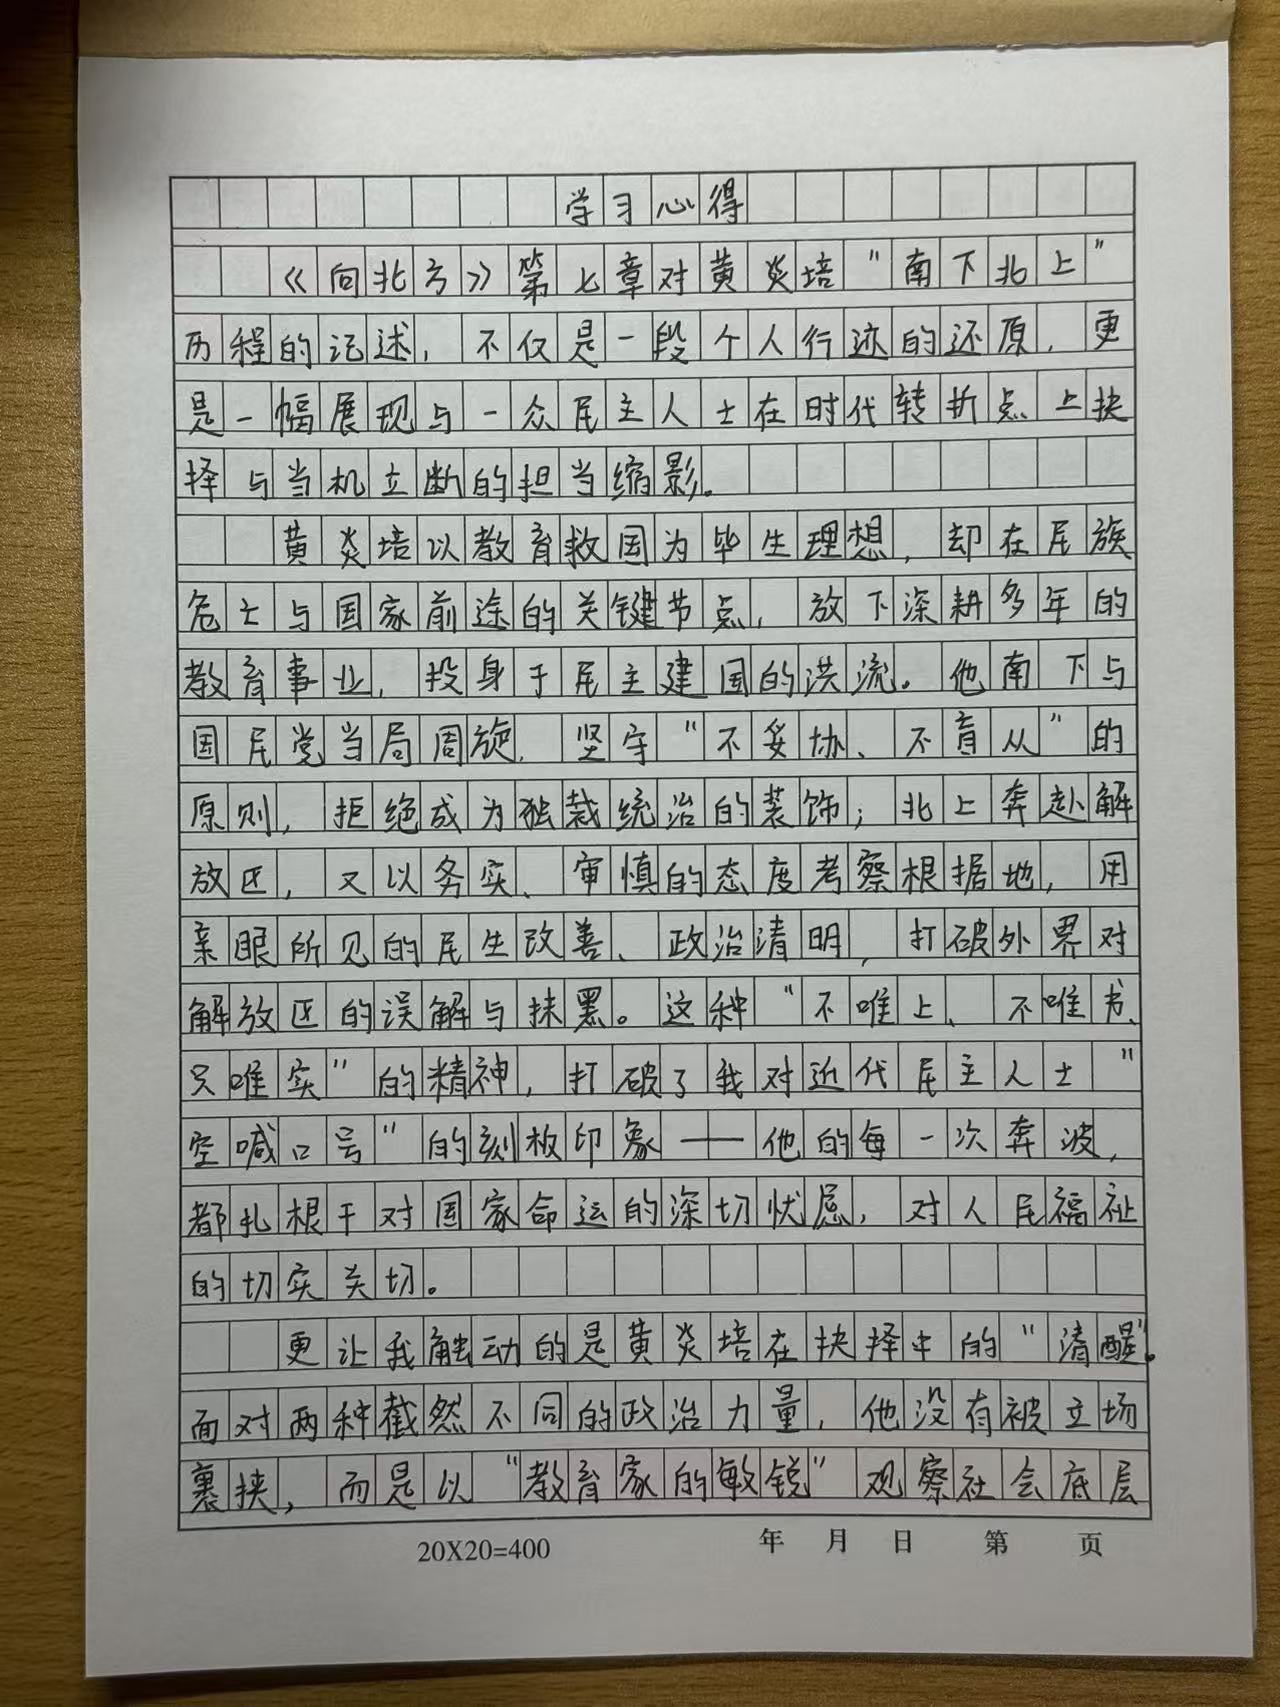 学习心得
《向北方》第七章对黄炎培“南下北上”
历程的记述，不仅是一段个人行迹的还原，更
是一幅展现与一众民主人士在时代转折点上抉
择与当机立断的担当缩影。
黄炎培以教育救国为毕生理想，却在民族
危亡与国家前途的关键节点，放下深耕多年的
教育事业，投身于民主建国的洪流。他南下与
国民党当局周旋，坚守“不妥协、不盲从”的
原则，拒绝成为独裁统治的装饰；北上奔赴解
放区，又以务实、审慎的态度考察根据地，用
亲眼所见的民生改善、政治清明，打破外界对
解放区的误解与抹黑。这种“不唯上、不唯书、
只唯实”的精神，打破了我对近代民主人士“
空喊口号”的刻板印象——他的每一次奔波，
都扎根于对国家命运的深切忧虑，对人民福祉
的切实关切。
更让我触动的是黄炎培在抉择中的“清醒”。
面对两种截然不同的政治力量，他没有被立场
裹挟，而是以“教育家的敏锐”观察社会底层
20X20=400 年 月 日 第 页